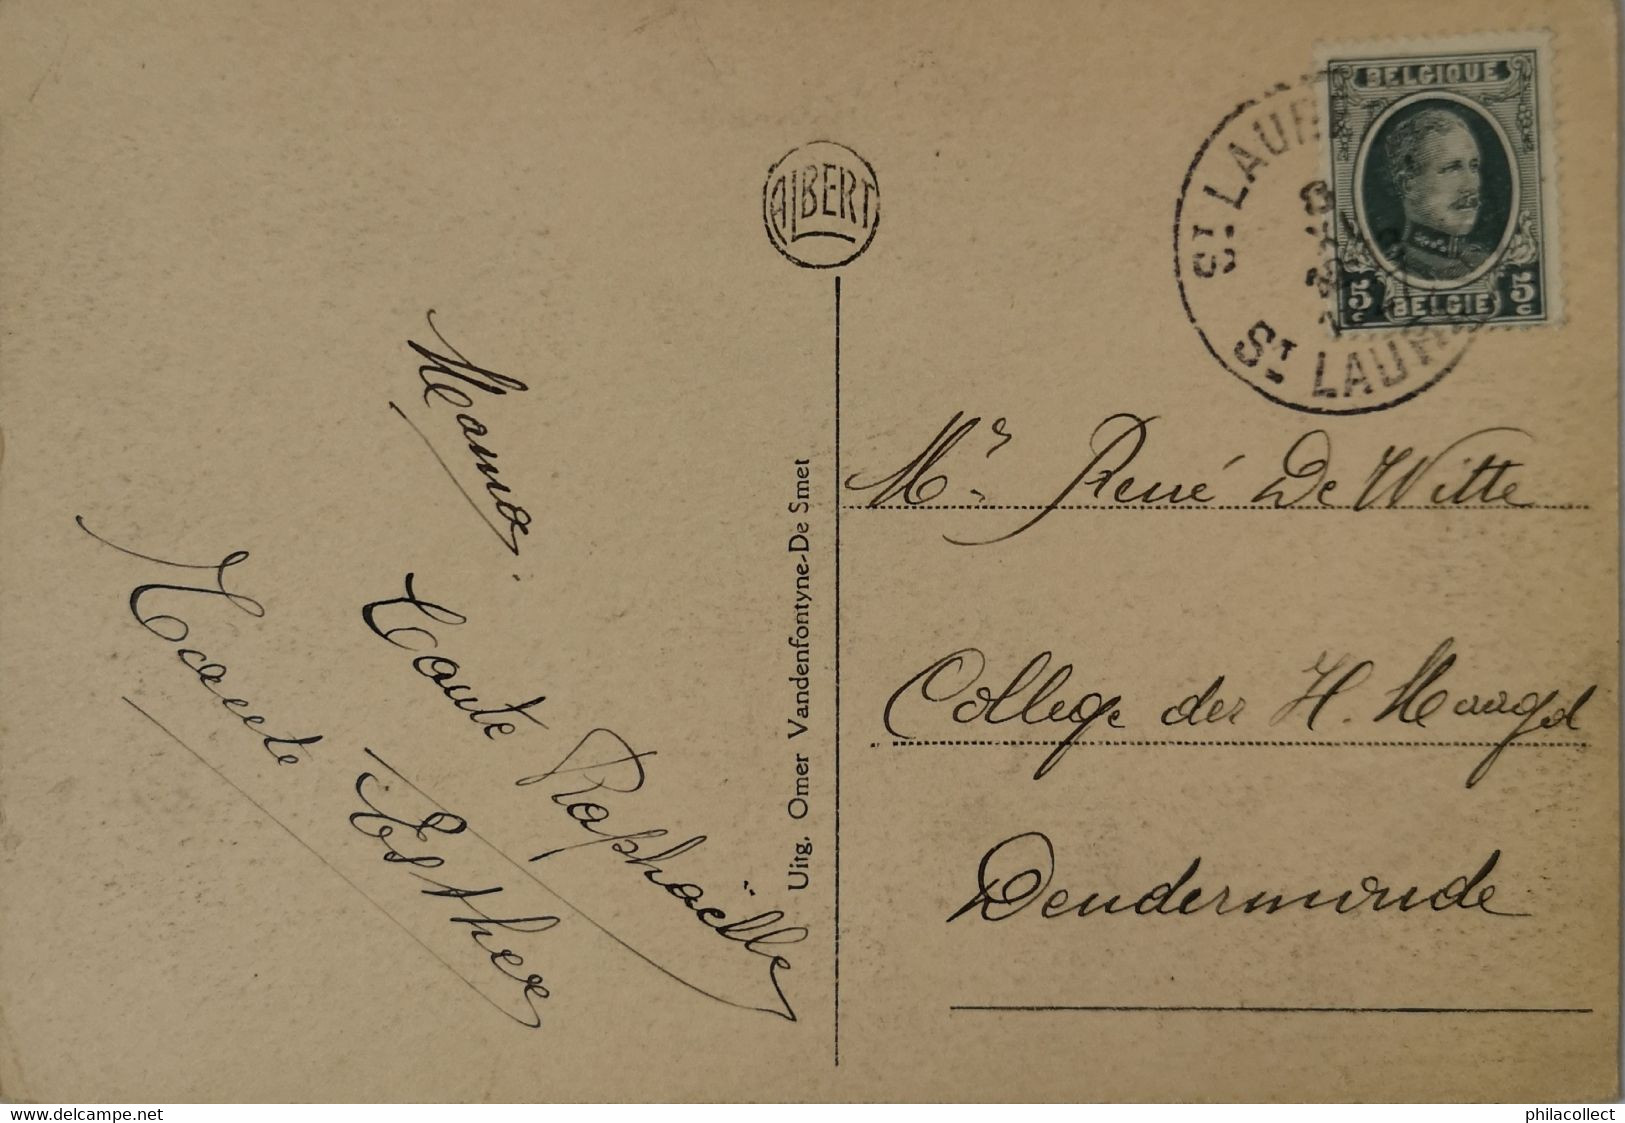 Mama
Tante Raphaëlle
Tante Esther
ALBERT
Uitg. Omer Vandenfontyne-De Smet
BELGIQUE
5 c BELGIË 5 c
ST LAUR
ST LAUR
Mr René De Witte
College der H. Maagd
Dendermonde
www.delcampe.net
philacollect